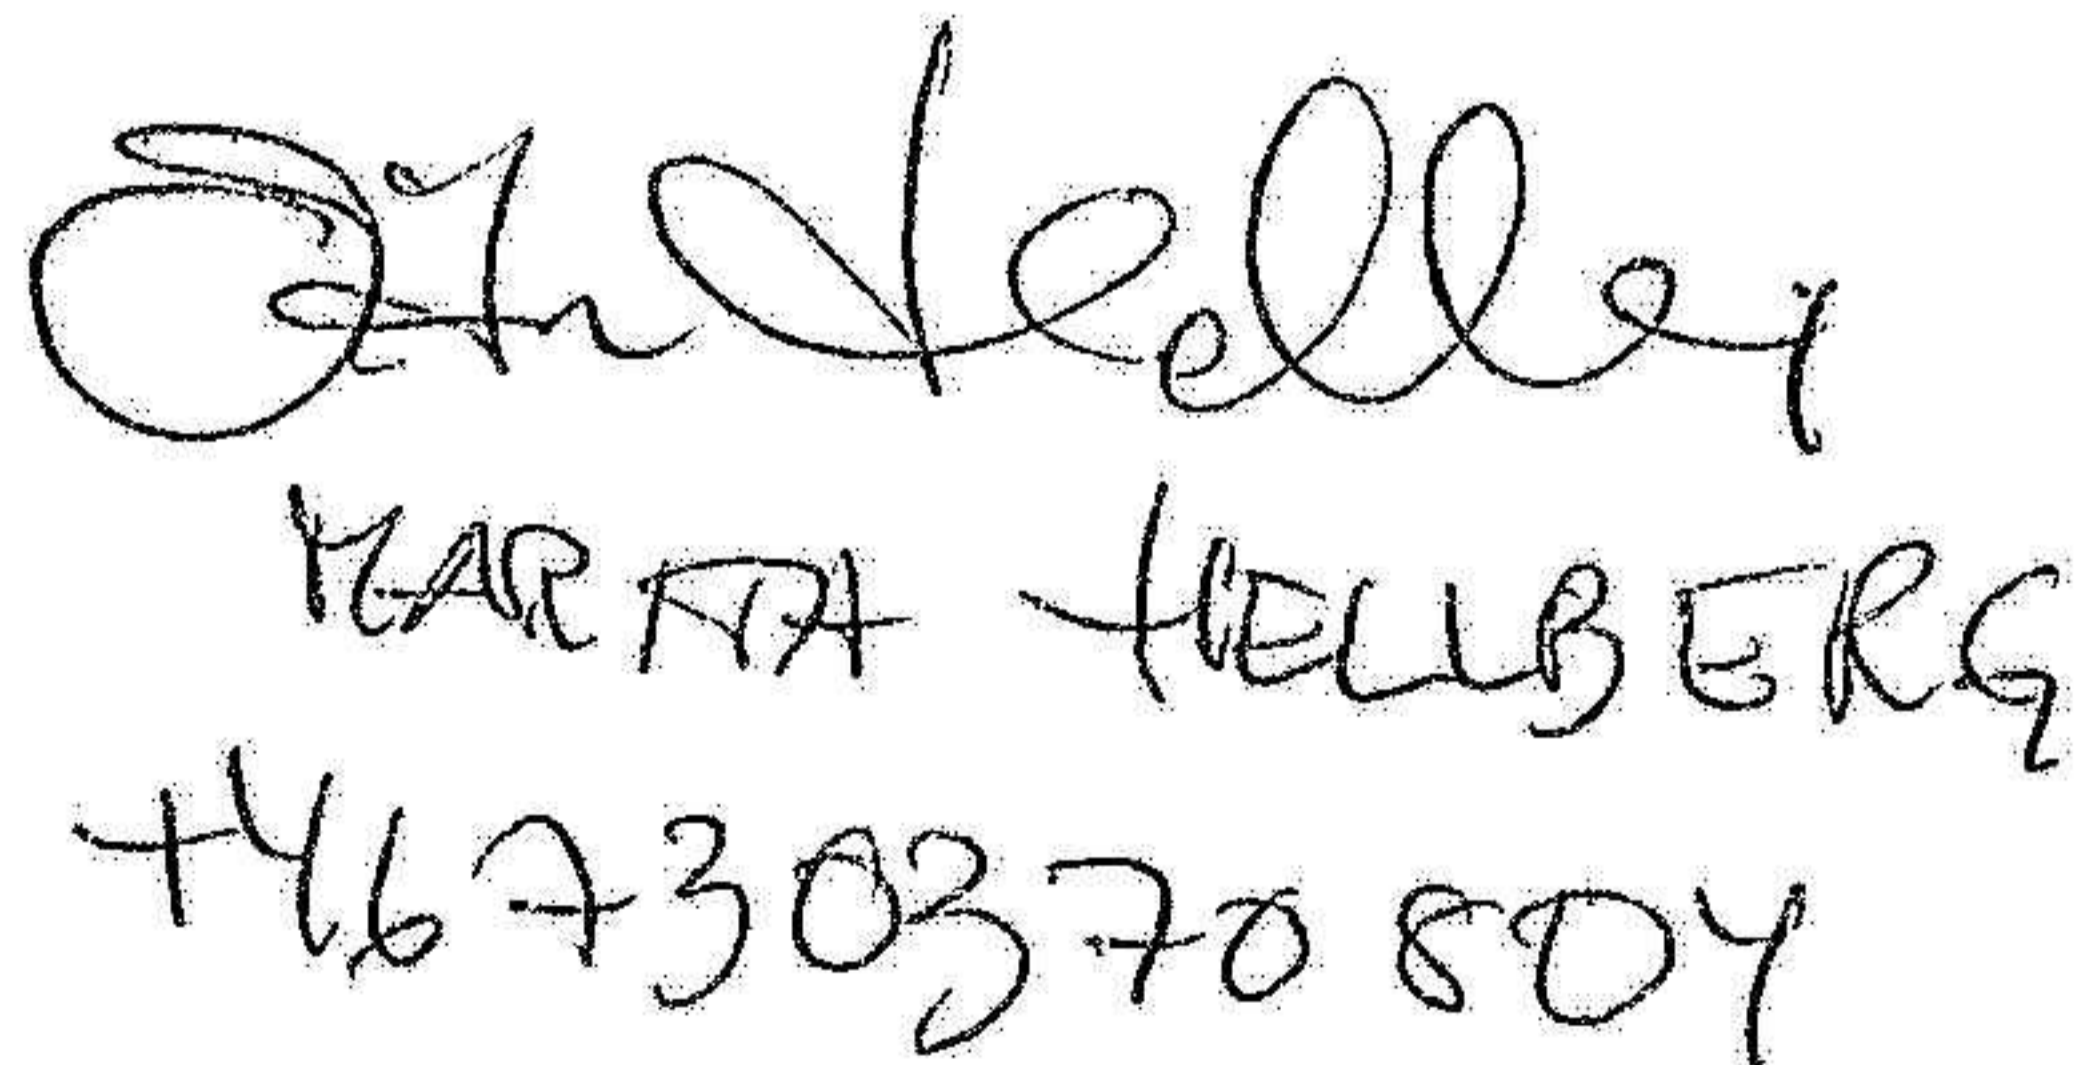 MARTA HELLBERG
+46730370804